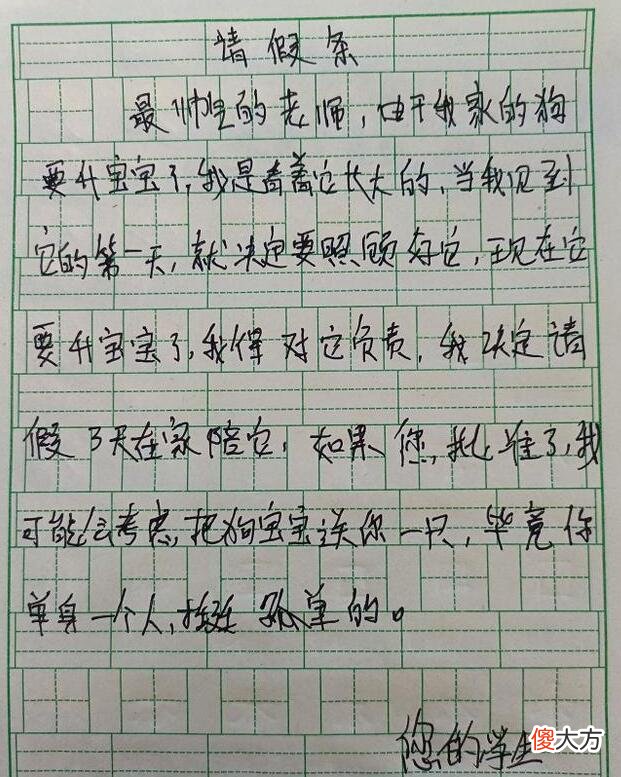 请假条
最帅的老师，由于我家的狗
要升宝宝了，我是看着它长大的，当我见到
它的第一天，就决定要照顾好它，现在它
要升宝宝了，我得对它负责，我决定请
假3天在家陪它，如果您，批准了，我
可能会考虑，把狗宝宝送你一只，毕竟你
单身一个人，挺孤单的。
您的学生
傻大方